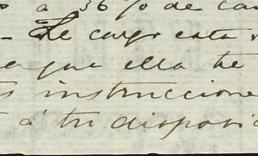 a 36% de ca
- Le cargo esta
que ella te
instruccione
á tu disposic